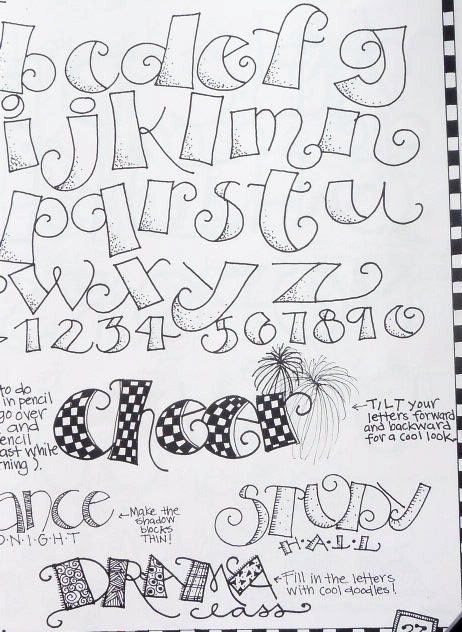 b c d e f g
i j k l m n
p q r s t u
w x y z
1 2 3 4 5 6 7 8 9 0
to do
in pencil
go over
and
encil
ast while
rning ).
cheer
← TILT your
letters forward
and backward
for a cool look.
ance
O·N·I·G·H·T
← Make the
shadow
blocks
THIN!
STUDY
H·A·L·L
DRAMA
class
← Fill in the letters
with cool doodles!
27